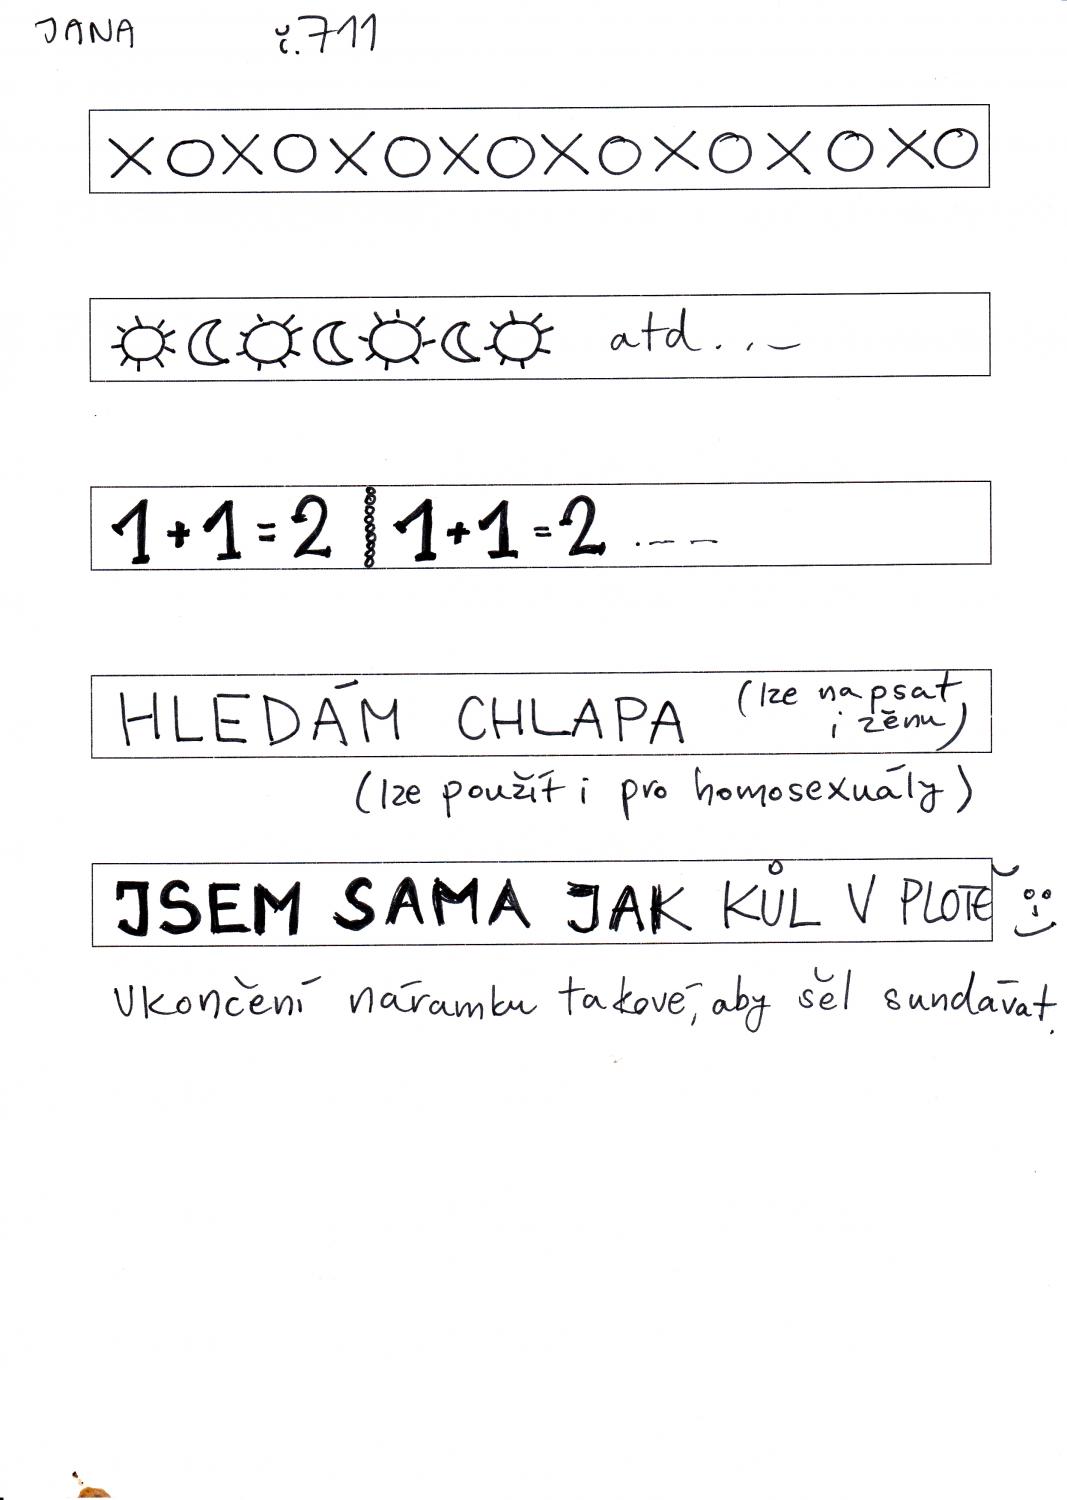 JANA č.711
XOXOXOXOXOXOXOXO
atd...
1+1=2 1+1=2 ...
HLEDÁM CHLAPA (lze napsat
i zěnu)
(lze použít i pro homosexuály)
JSEM SAMA JAK KŮL V PLOTĚ
Ukončení náramku takové, aby šel sundávat.